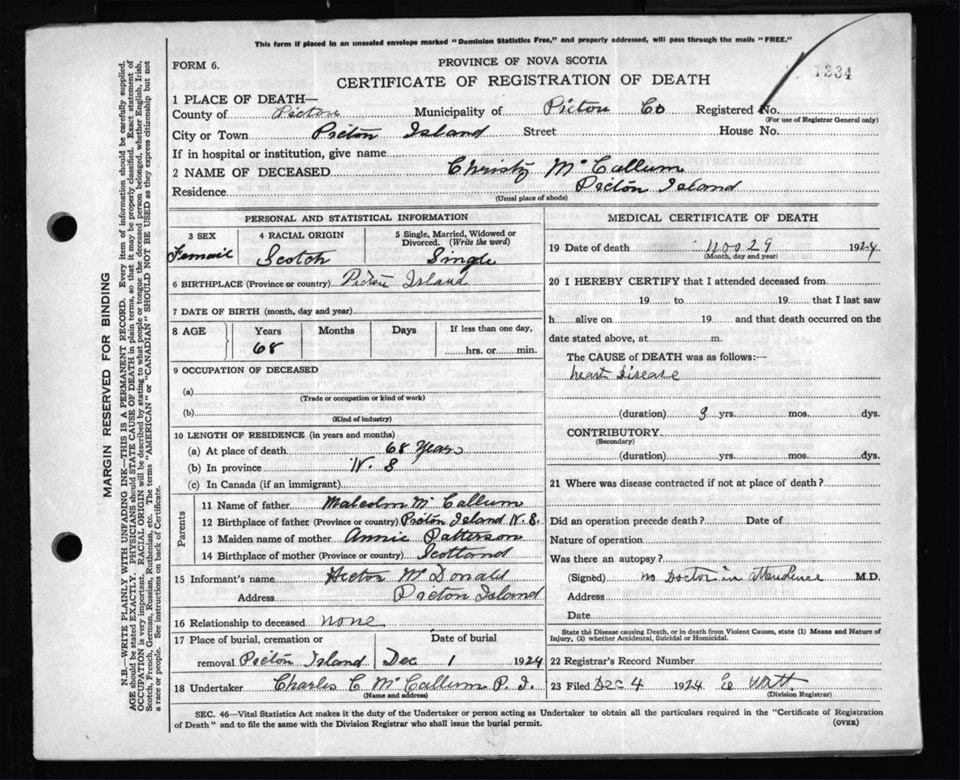 This form if placed in an unsealed envelope marked "Dominion Statistics Free," and properly addressed, will pass through the mails "FREE."
FORM 6.
PROVINCE OF NOVA SCOTIA
1334
CERTIFICATE OF REGISTRATION OF DEATH
1 PLACE OF DEATH—
County of Picton Municipality of Picton Co Registered No.
(For use of Registrar General only)
City or Town Picton Island Street House No.
If in hospital or institution, give name
2 NAME OF DECEASED Christy McCallum
Residence Picton Island
(Usual place of abode)
PERSONAL AND STATISTICAL INFORMATION
3 SEX 4 RACIAL ORIGIN 5 Single, Married, Widowed or Divorced. (Write the word)
Femail Scotch Single
6 BIRTHPLACE (Province or country) Picton Island
7 DATE OF BIRTH (month, day and year)
8 AGE Years Months Days If less than one day,
68 hrs. or min.
9 OCCUPATION OF DECEASED
(a)
(Trade or occupation or kind of work)
(b)
(Kind of industry)
10 LENGTH OF RESIDENCE (in years and months)
(a) At place of death 68 Years
(b) In province N. S
(c) In Canada (if an immigrant)
Parents
11 Name of father Malcolm McCallum
12 Birthplace of father (Province or country) Picton Island N.S.
13 Maiden name of mother Annie Patterson
14 Birthplace of mother (Province or country) Scotland
15 Informant's name Hector McDonald
Address Picton Island
16 Relationship to deceased none
17 Place of burial, cremation or Date of burial
removal Picton Island Dec 1 1924
18 Undertaker Charles C. McCallum P. I.
(Name and address)
MEDICAL CERTIFICATE OF DEATH
19 Date of death 29 1924
(Month, day and year)
20 I HEREBY CERTIFY that I attended deceased from
19 to 19 that I last saw
h alive on 19 and that death occurred on the
date stated above, at m.
The CAUSE of DEATH was as follows:—
heart disease
(duration) 3 yrs. mos. dys.
CONTRIBUTORY
(Secondary)
(duration) yrs. mos. dys.
21 Where was disease contracted if not at place of death?
Did an operation precede death? Date of
Nature of operation
Was there an autopsy?
(Signed) no Doctor in attendence M.D.
Address
Date
State the Disease causing Death, or in death from Violent Causes, state (1) Means and Nature of
Injury, (2) whether Accidental, Suicidal or Homicidal.
22 Registrar's Record Number
23 Filed Dec 4 1924 Watt
(Division Registrar)
SEC. 46—Vital Statistics Act makes it the duty of the Undertaker or person acting as Undertaker to obtain all the particulars required in the "Certificate of Registration
of Death" and to file the same with the Division Registrar who shall issue the burial permit. (OVER)
MARGIN RESERVED FOR BINDING
N.B.—WRITE PLAINLY WITH UNFADING INK—THIS IS A PERMANENT RECORD. Every item of information should be carefully supplied.
AGE should be stated EXACTLY. PHYSICIANS should STATE CAUSE OF DEATH in plain terms, so that it may be properly classified. Exact statement of
OCCUPATION is very important. RACIAL ORIGIN will be described by stating to what people or tongue the deceased person belonged, whether English, Irish,
Scotch, French, German, Russian, Ruthenian, etc. The terms "AMERICAN" or "CANADIAN" SHOULD NOT BE USED as they express citizenship but not
a race or people. See instructions on back of Certificate.